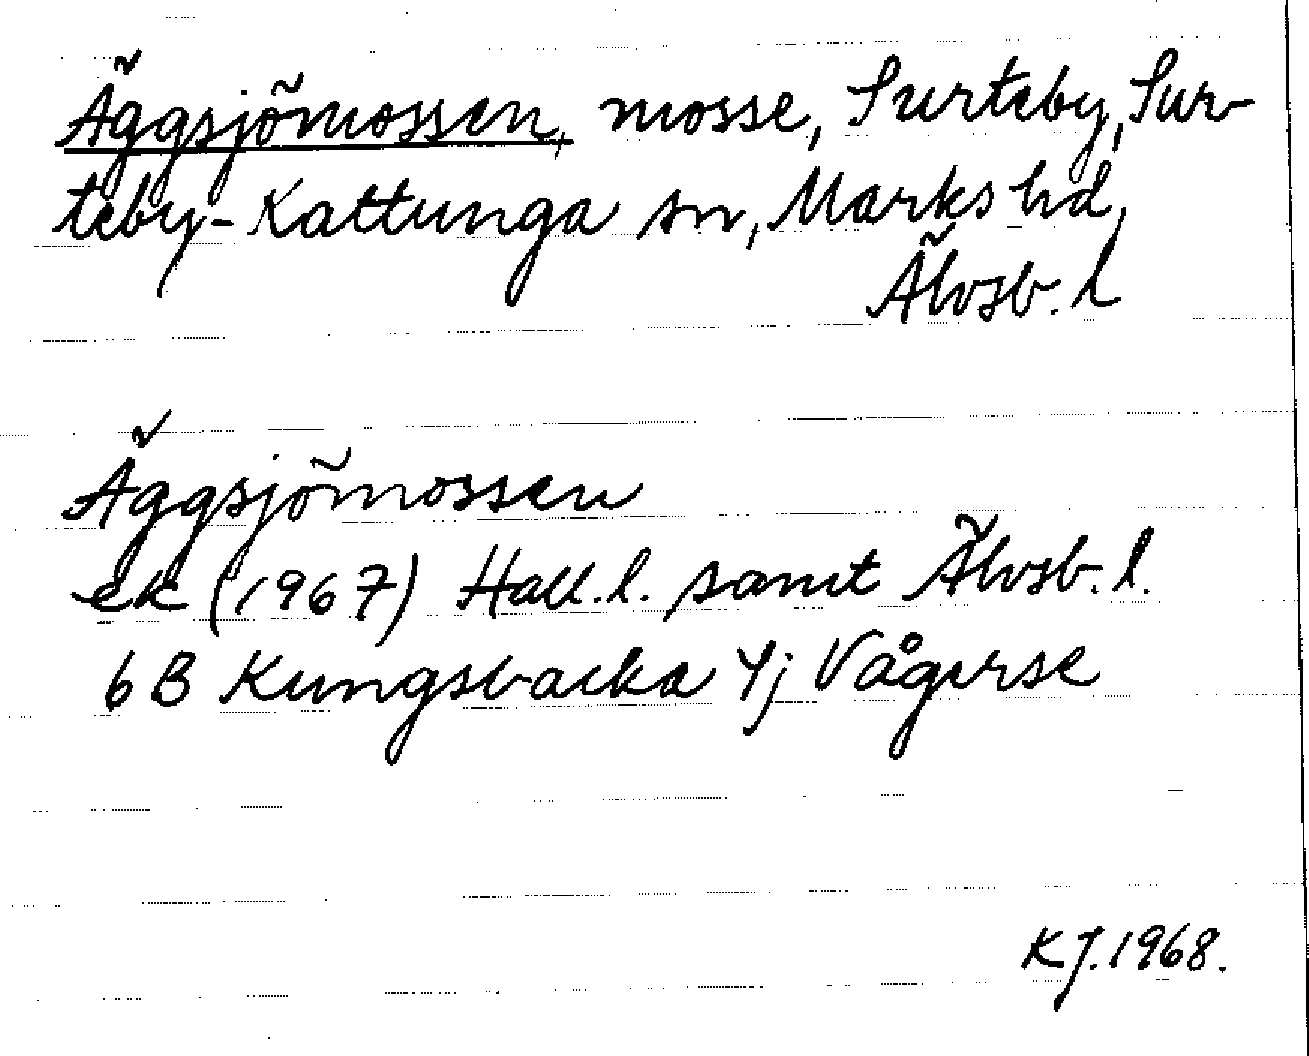 Äggsjömossen, mosse, Surteby, Sur-
teby-Kattunga sn, Marks hd,
Älvsb. l
Äggsjömossen
ek (1967) Hall.l. samt Älvsb. l.
6 B Kungsbacka 4j Vågerse
KJ. 1968.